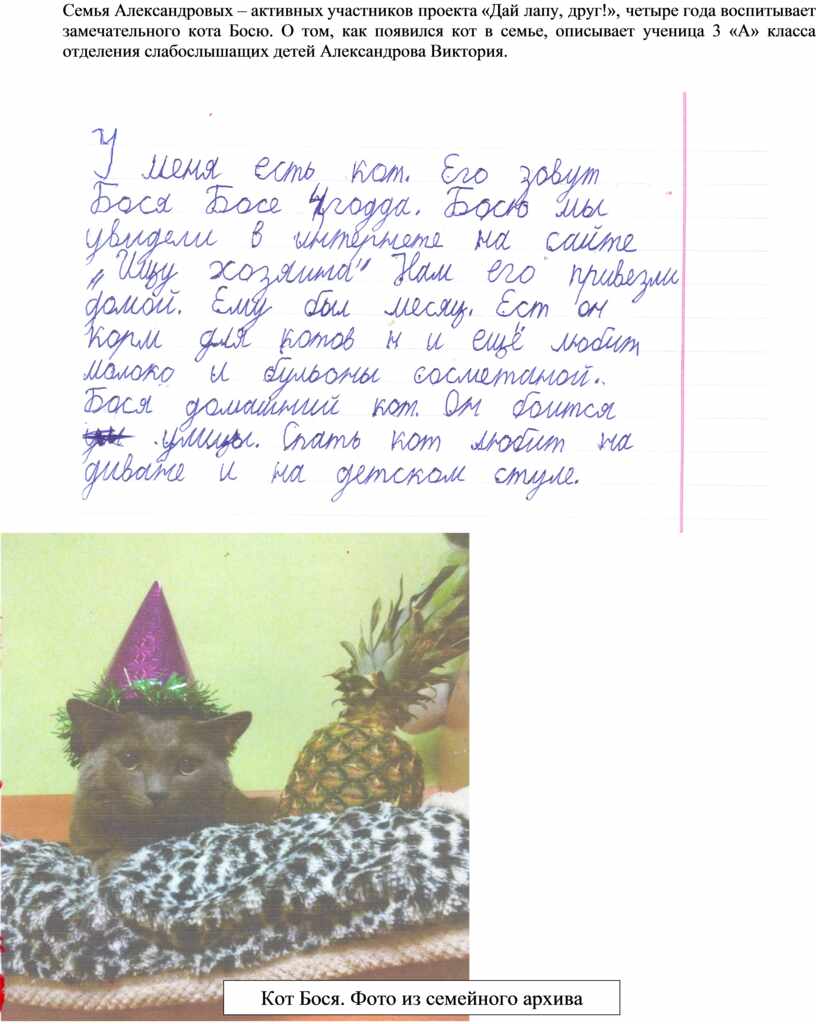 Семья Александровых – активных участников проекта «Дай лапу, друг!», четыре года воспитывает
замечательного кота Босю. О том, как появился кот в семье, описывает ученица 3 «А» класса
отделения слабослышащих детей Александрова Виктория.
У меня есть кот. Его зовут
Бося Босе 4 годда. Босю мы
увидели в интернете на сайте
„Ищу хозяина" Нам его привезли
домой. Ему был месяц. Ест он
корм для котов н и ещё любит
молоко и бульоны сосметаной.
Бося домашний кот. Он боится
улицы. Спать кот любит на
диване и на детском стуле.
Кот Бося. Фото из семейного архива